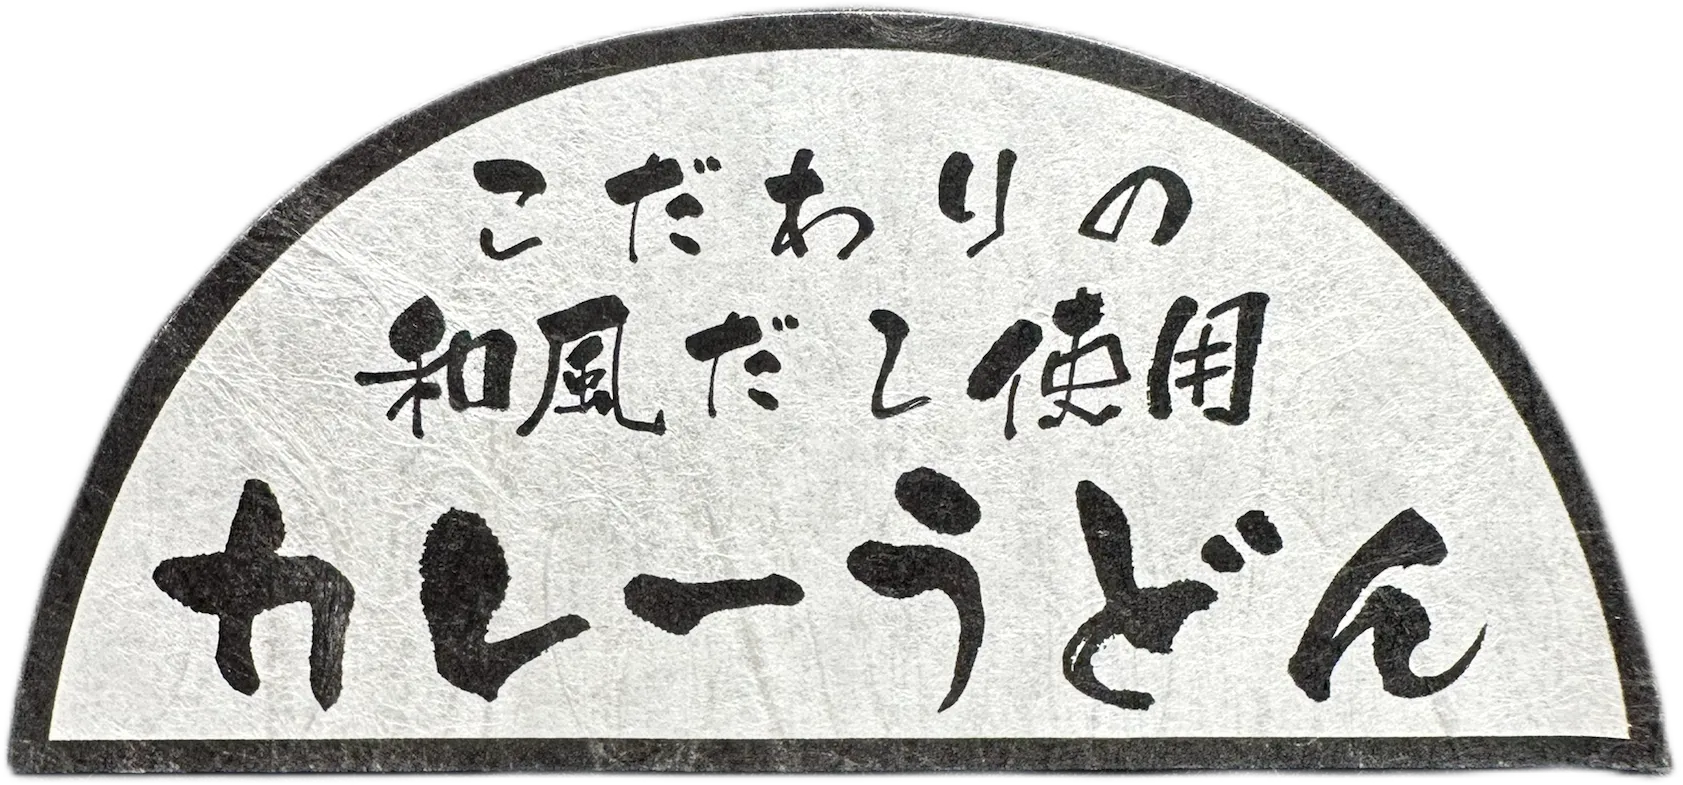 こだわりの
和風だし使用
カレーうどん